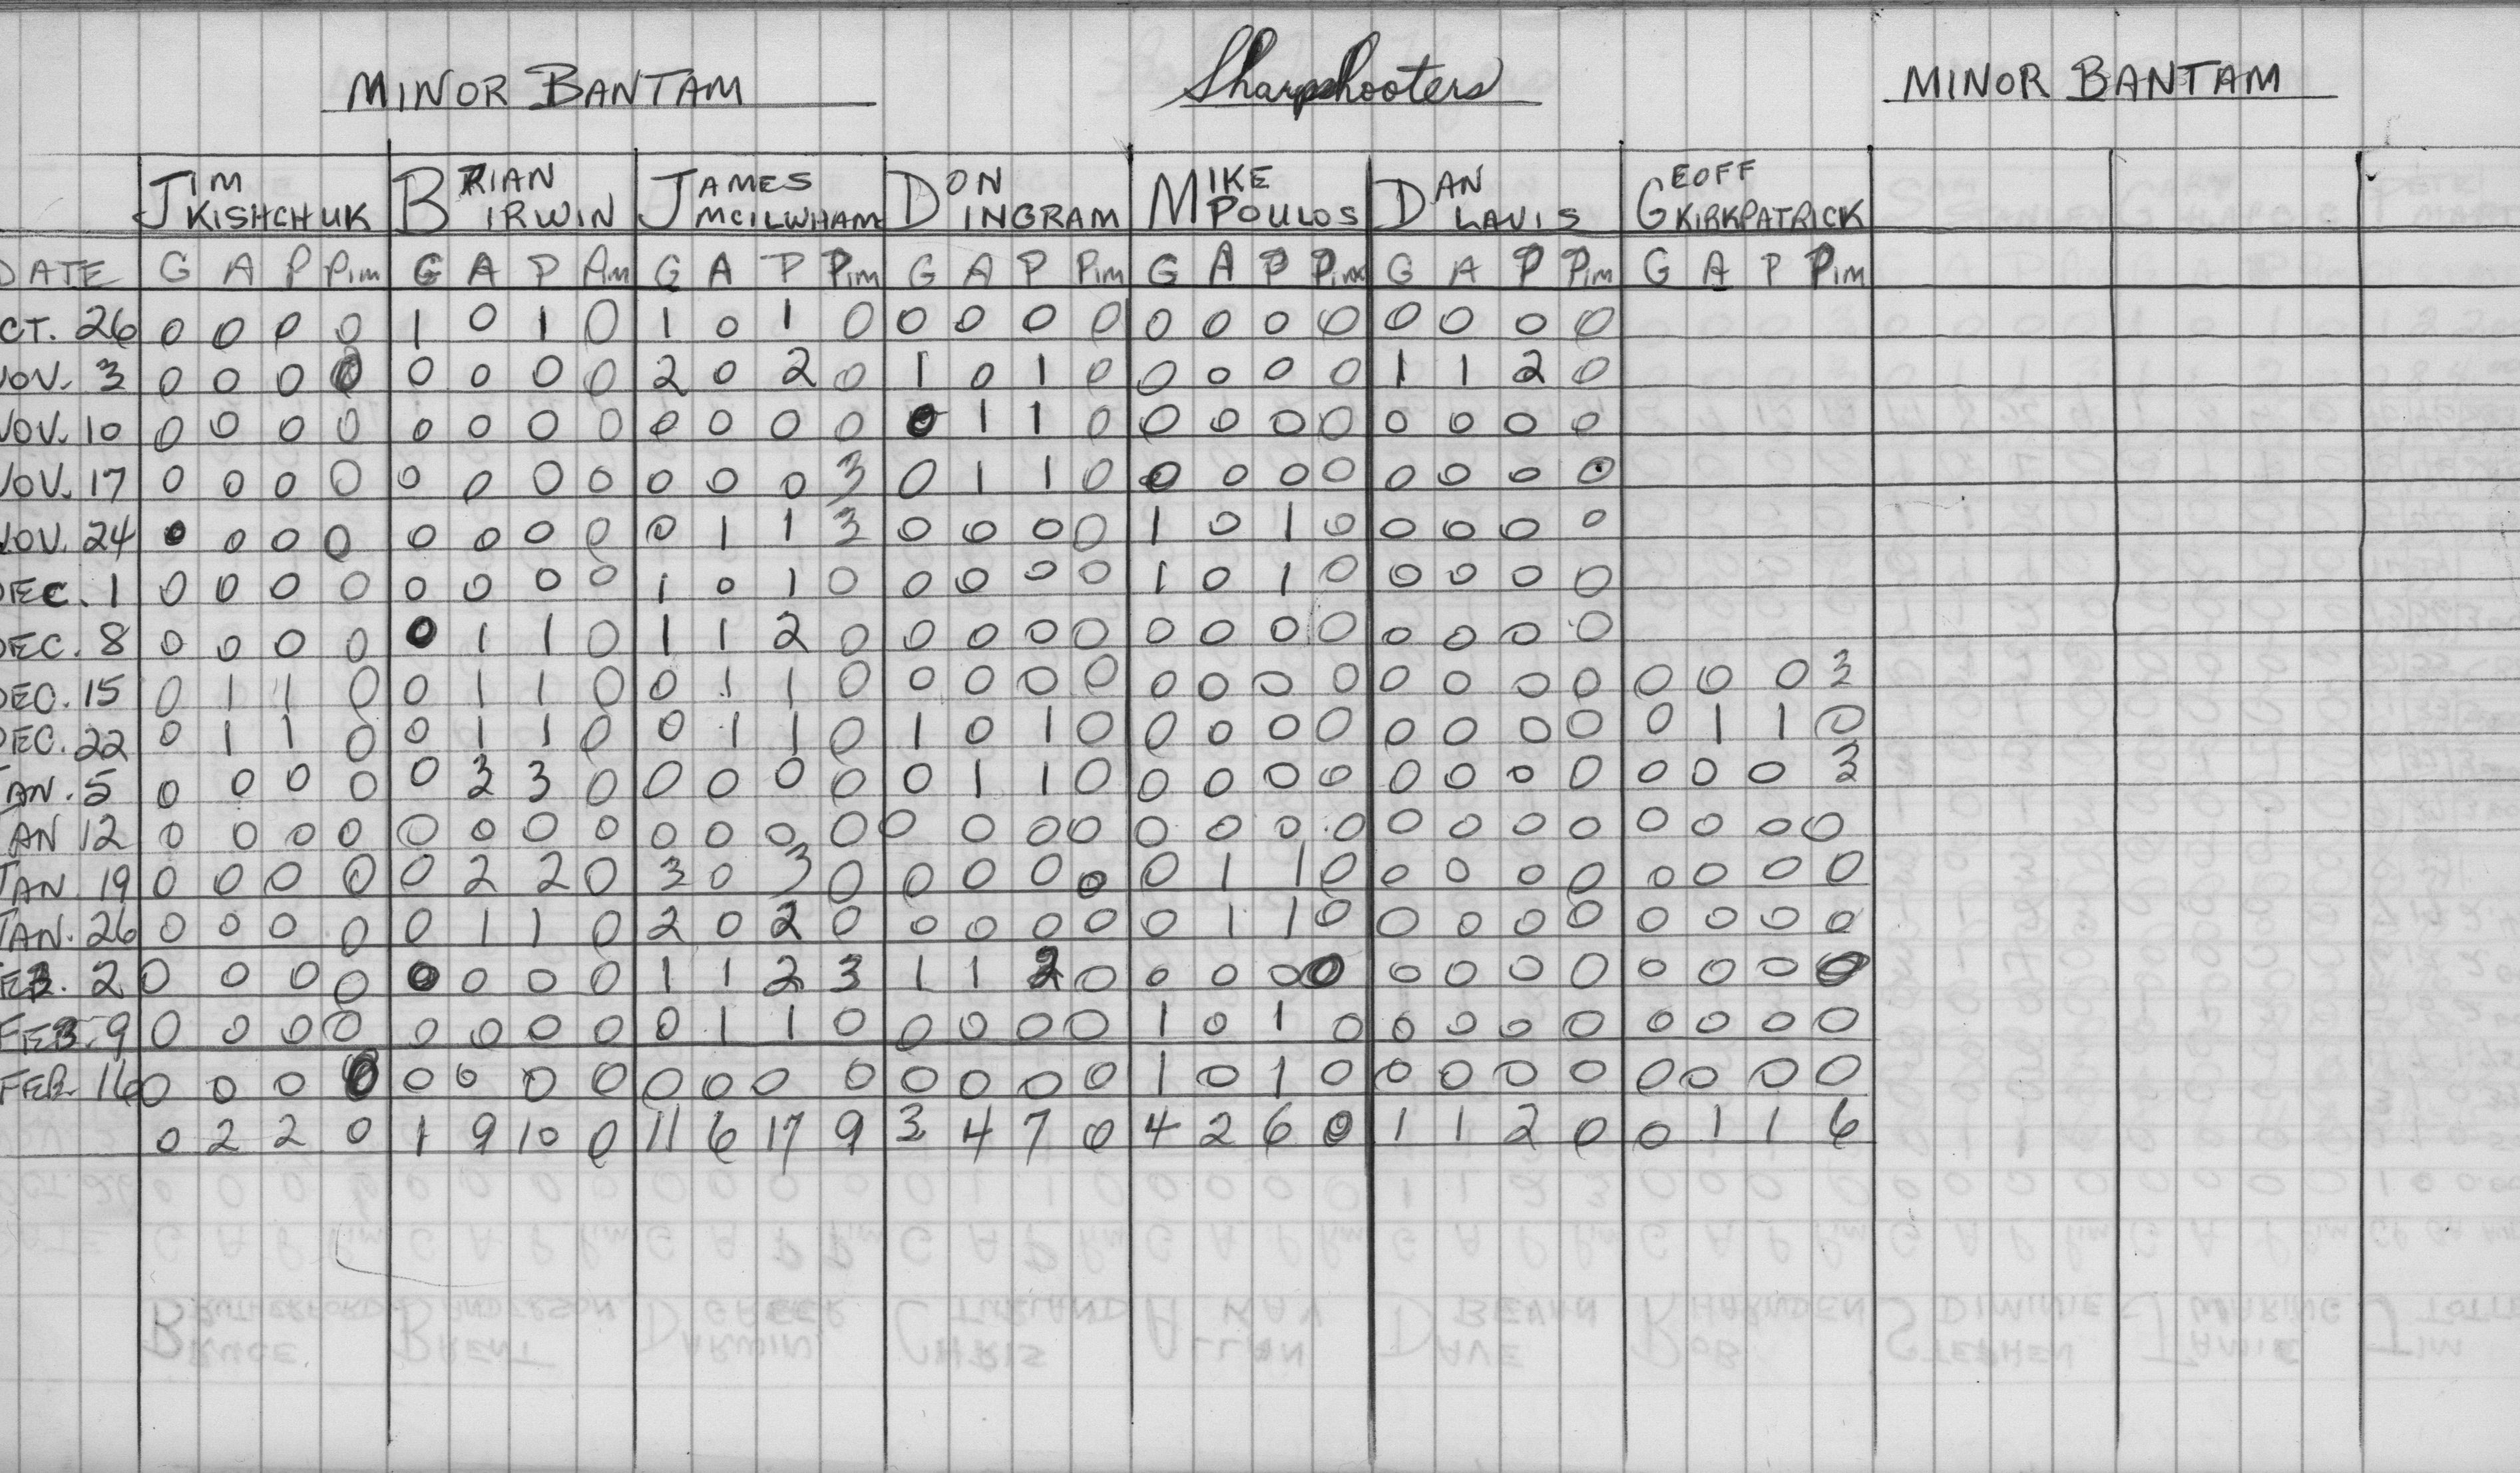 MINOR BANTAM Sharpshooters MINOR BANTAM
JIM KISHCHUK BRIAN IRWIN JAMES MCILWHAM DON INGRAM MIKE POULOS DAN LAVIS GEOFF KIRKPATRICK
DATE G A P Pim G A P Pim G A P Pim G A P Pim G A P Pim G A P Pim G A P Pim
CT. 26 0 0 0 0 1 0 1 0 1 0 1 0 0 0 0 0 0 0 0 0 0 0 0 0
NOV. 3 0 0 0 0 0 0 0 0 2 0 2 0 1 0 1 0 0 0 0 0 1 1 2 0
NOV. 10 0 0 0 0 0 0 0 0 0 0 0 0 0 1 1 0 0 0 0 0 0 0 0 0
NOV. 17 0 0 0 0 0 0 0 0 0 0 0 3 0 1 1 0 0 0 0 0 0 0 0 0
NOV. 24 0 0 0 0 0 0 0 0 0 1 1 3 0 0 0 0 1 0 1 0 0 0 0 0
DEC. 1 0 0 0 0 0 0 0 0 1 0 1 0 0 0 0 0 1 0 1 0 0 0 0 0
DEC. 8 0 0 0 0 0 1 1 0 1 1 2 0 0 0 0 0 0 0 0 0 0 0 0 0
DEC. 15 0 1 1 0 0 1 1 0 0 1 1 0 0 0 0 0 0 0 0 0 0 0 0 0 0 0 0 3
DEC. 22 0 1 1 0 0 1 1 0 0 1 1 0 1 0 1 0 0 0 0 0 0 0 0 0 0 1 1 0
JAN. 5 0 0 0 0 0 3 3 0 0 0 0 0 0 1 1 0 0 0 0 0 0 0 0 0 0 0 0 3
JAN 12 0 0 0 0 0 0 0 0 0 0 0 0 0 0 0 0 0 0 0 0 0 0 0 0 0 0 0 0
JAN. 19 0 0 0 0 0 2 2 0 3 0 3 0 0 0 0 0 0 1 1 0 0 0 0 0 0 0 0 0
JAN. 26 0 0 0 0 0 1 1 0 2 0 2 0 0 0 0 0 0 1 1 0 0 0 0 0 0 0 0 0
FEB. 2 0 0 0 0 0 0 0 0 1 1 2 3 1 1 2 0 0 0 0 0 0 0 0 0 0 0 0 0
FEB. 9 0 0 0 0 0 0 0 0 0 1 1 0 0 0 0 0 1 0 1 0 0 0 0 0 0 0 0 0
FEB. 16 0 0 0 0 0 0 0 0 0 0 0 0 0 0 0 0 1 0 1 0 0 0 0 0 0 0 0 0
0 2 2 0 1 9 10 0 11 6 17 9 3 4 7 0 4 2 6 0 1 1 2 0 0 1 1 6